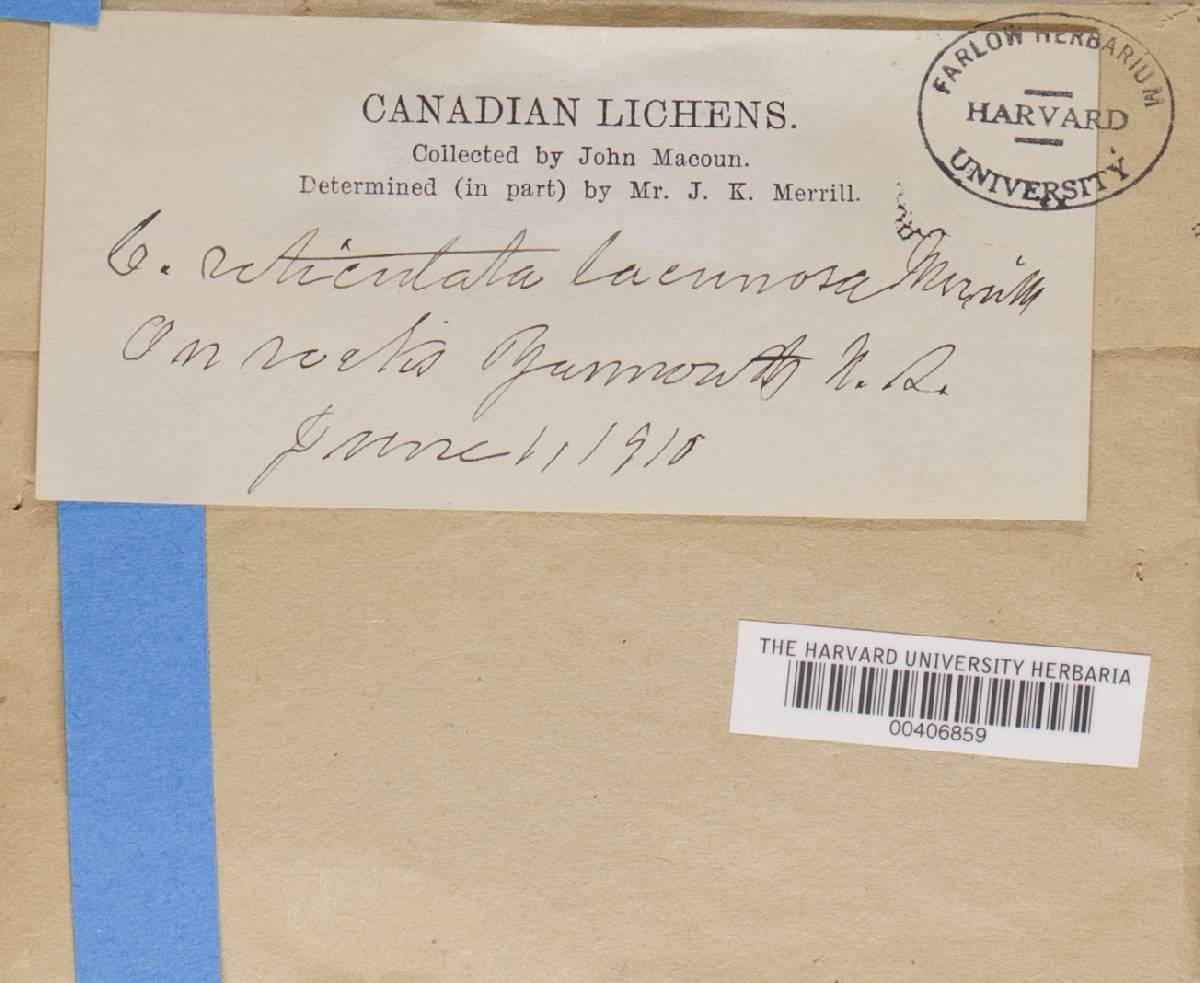 FARLOW HERBARIUM
HARVARD
UNIVERSITY
CANADIAN LICHENS.
Collected by John Macoun.
Determined (in part) by Mr. J. K. Merrill.
C. reticulata lacunosa Merrill
On rocks Yarmouth N. S.
June 1, 1910
THE HARVARD UNIVERSITY HERBARIA
00406859